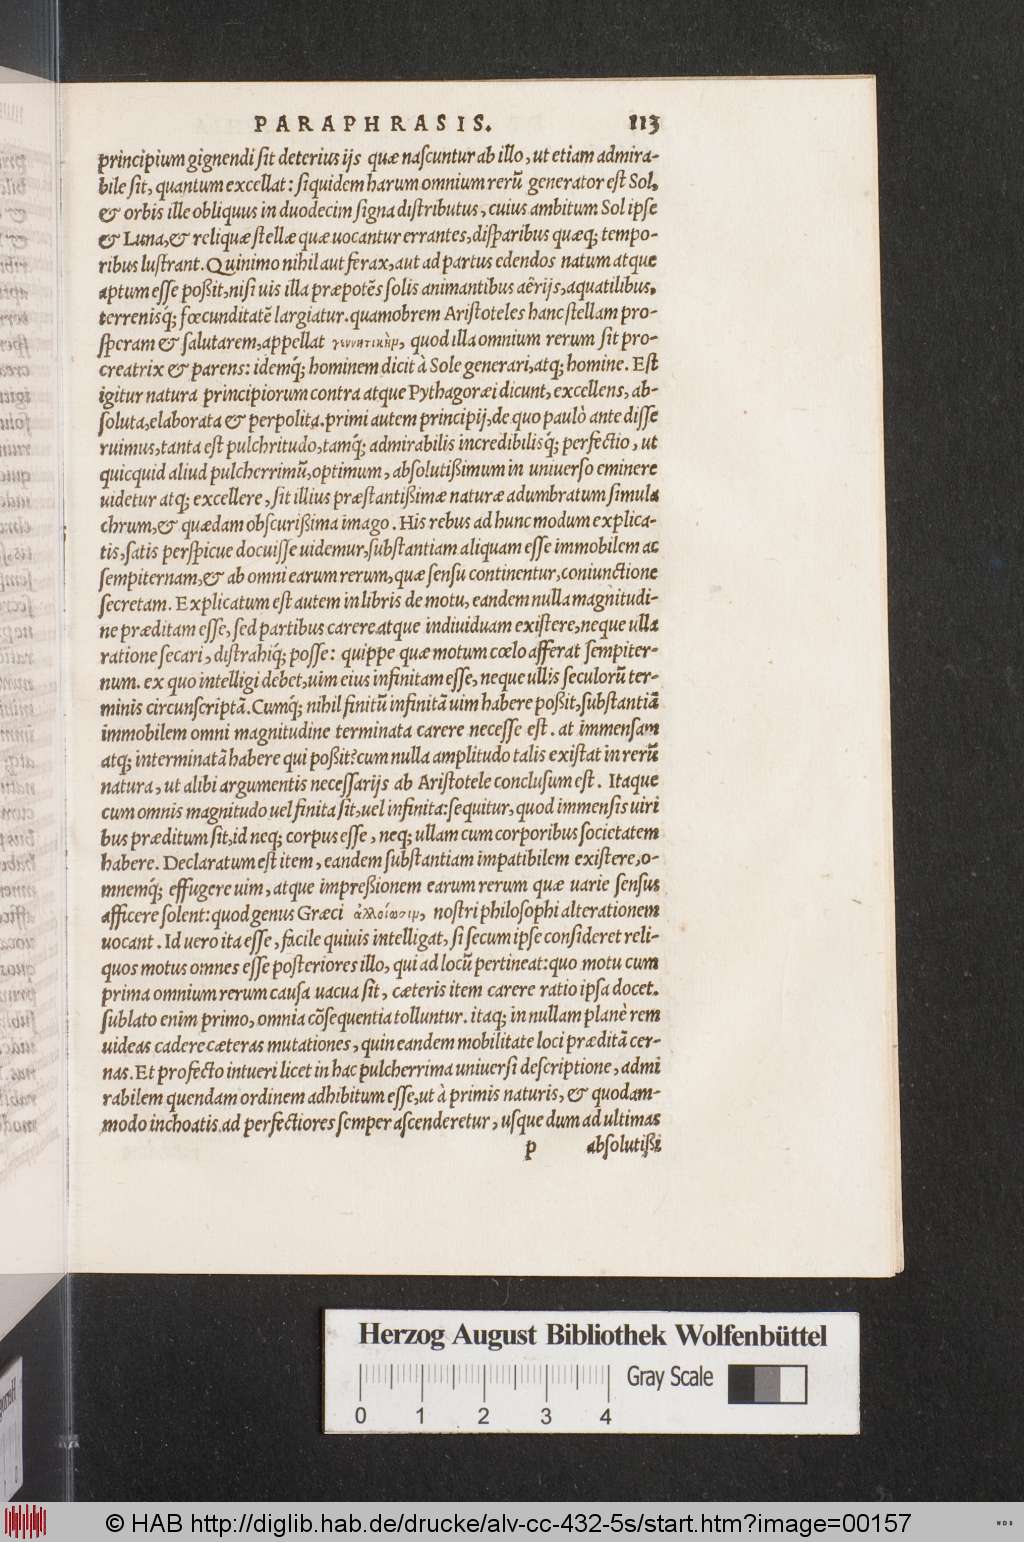 PARAPHRASIS. 113
principium gignendi ſit deterius ijs quæ naſcuntur ab illo, ut etiam admira-
bile ſit, quantum excellat: ſiquidem harum omnium rerũ generator eſt Sol,
& orbis ille obliquus in duodecim ſigna diſtributus, cuius ambitum Sol ipſe
& Luna, & reliquæ ſtellæ quæ uocantur errantes, diſparibus quæq; tempo-
ribus luſtrant. Quinimo nihil aut ferax, aut ad partus edendos natum atque
aptum eſſe poßit, niſi uis illa præpotẽs ſolis animantibus aërijs, aquatilibus,
terrenisq́; fœcunditatẽ largiatur. quamobrem Ariſtoteles hanc ſtellam pro-
ſperam & ſalutarem, appellat γεννητικὴν, quod illa omnium rerum ſit pro-
creatrix & parens: idemq́; hominem dicit à Sole generari, atq; homine. Eſt
igitur natura principiorum contra atque Pythagoræi dicunt, excellens, ab-
ſoluta, elaborata & perpolita. primi autem principij, de quo paulò ante diſſe
ruimus, tanta eſt pulchritudo, tamq́; admirabilis incredibilisq́; perfectio, ut
quicquid aliud pulcherrimũ, optimum, abſolutißimum in uniuerſo eminere
uidetur atq; excellere, ſit illius præſtantißimæ naturæ adumbratum ſimula
chrum, & quædam obſcurißima imago. His rebus ad hunc modum explica-
tis, ſatis perſpicue docuiſſe uidemur, ſubſtantiam aliquam eſſe immobilem ac
ſempiternam, & ab omni earum rerum, quæ ſenſu continentur, coniunctione
ſecretam. Explicatum eſt autem in libris de motu, eandem nulla magnitudi-
ne præditam eſſe, ſed partibus carere atque indiuiduam exiſtere, neque ulla
ratione ſecari, diſtrahiq́; poſſe: quippe quæ motum cœlo afferat ſempiter-
num. ex quo intelligi debet, uim eius infinitam eſſe, neque ullis ſeculorũ ter-
minis circunſcriptã. Cumq́; nihil finitũ infinitã uim habere poßit, ſubſtantiã
immobilem omni magnitudine terminata carere neceſſe eſt. at immenſam
atq; interminatã habere qui poßit? cum nulla amplitudo talis exiſtat in rerũ
natura, ut alibi argumentis neceſſarijs ab Ariſtotele concluſum eſt. Itaque
cum omnis magnitudo uel finita ſit, uel infinita: ſequitur, quod immenſis uiri
bus præditum ſit, id neq; corpus eſſe, neq; ullam cum corporibus ſocietatem
habere. Declaratum eſt item, eandem ſubſtantiam impatibilem exiſtere, o-
mnemq́; effugere uim, atque impreßionem earum rerum quæ uarie ſenſus
afficere ſolent: quod genus Græci ἀλλοίωσιν, noſtri philoſophi alterationem
uocant. Id uero ita eſſe, facile quiuis intelligat, ſi ſecum ipſe conſideret reli-
quos motus omnes eſſe poſteriores illo, qui ad locũ pertineat: quo motu cum
prima omnium rerum cauſa uacua ſit, cæteris item carere ratio ipſa docet.
ſublato enim primo, omnia cõſequentia tolluntur. itaq; in nullam planè rem
uideas cadere cæteras mutationes, quin eandem mobilitate loci præditã cer-
nas. Et profecto intueri licet in hac pulcherrima uniuerſi deſcriptione, admi
rabilem quendam ordinem adhibitum eſſe, ut à primis naturis, & quodam-
modo inchoatis, ad perfectiores ſemper aſcenderetur, uſque dum ad ultimas
p abſolutißi
Herzog August Bibliothek Wolfenbüttel
Gray Scale
0 1 2 3 4
© HAB http://diglib.hab.de/drucke/alv-cc-432-5s/start.htm?image=00157